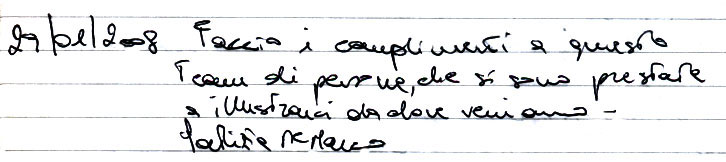 29/01/2008 Faccio i complimenti a questo
Team di persone, che si sono prestate
a illustrarci da dove veniamo -
De Marco